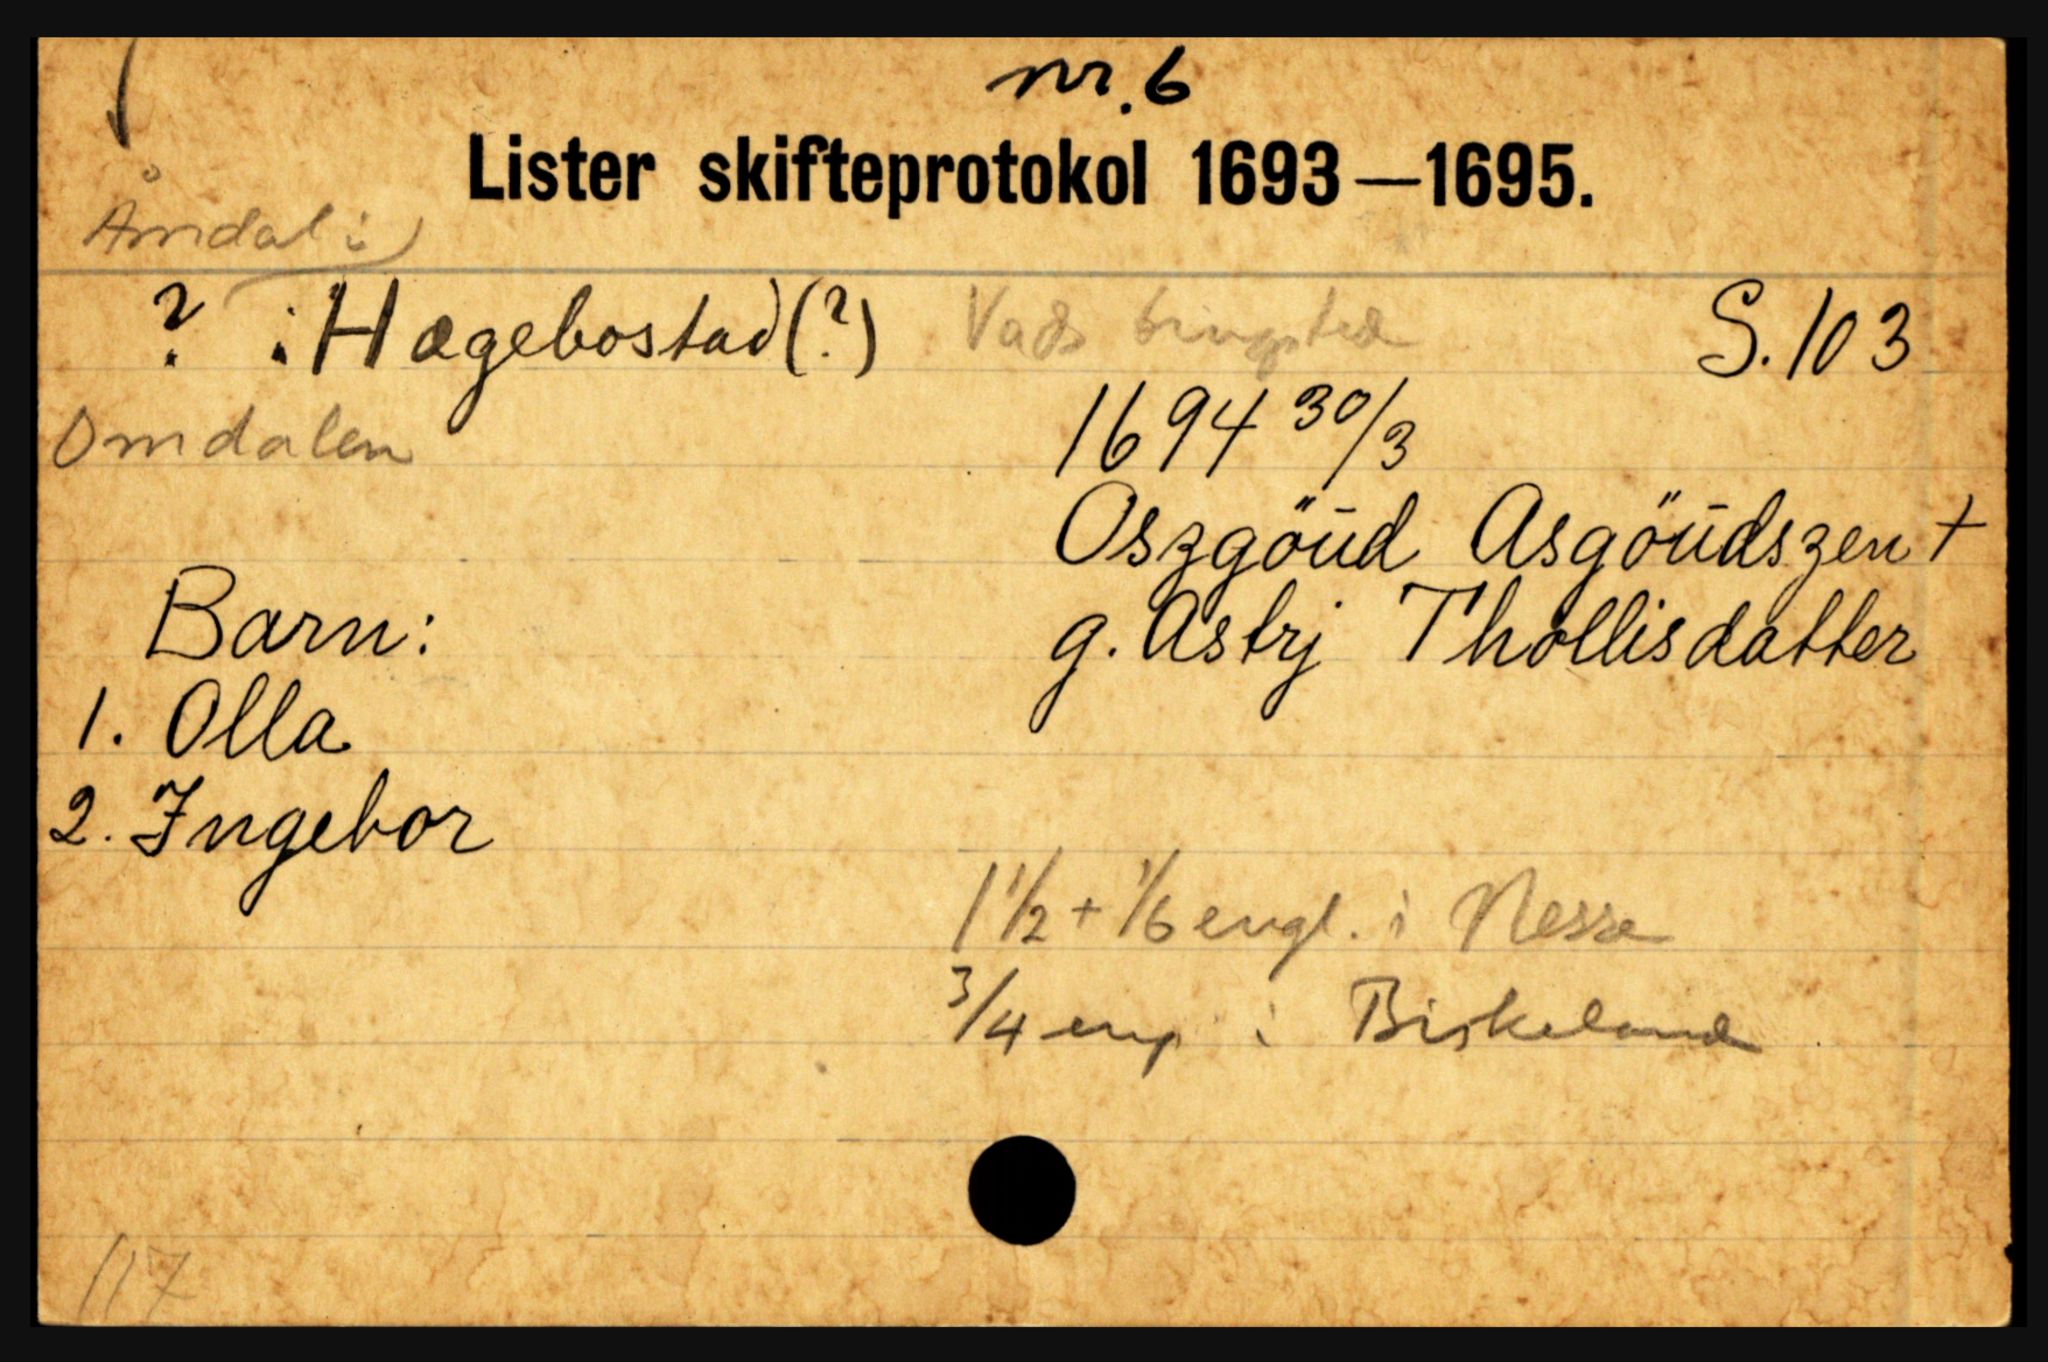 nr. 6
Lister skifteprotokol 1693—1695.
Åmdal i
? i Hægebostad (?) Vads tingsted S. 103
Omdalen
1694 30/3
Oszgöüd Asgöüdszen +
Barn: g. Astrj Thollisdatter
1. Olla
2. Ingebor
1 1/2 + 1/6 engl. i Nesse
3/4 eng i Birkeland
117